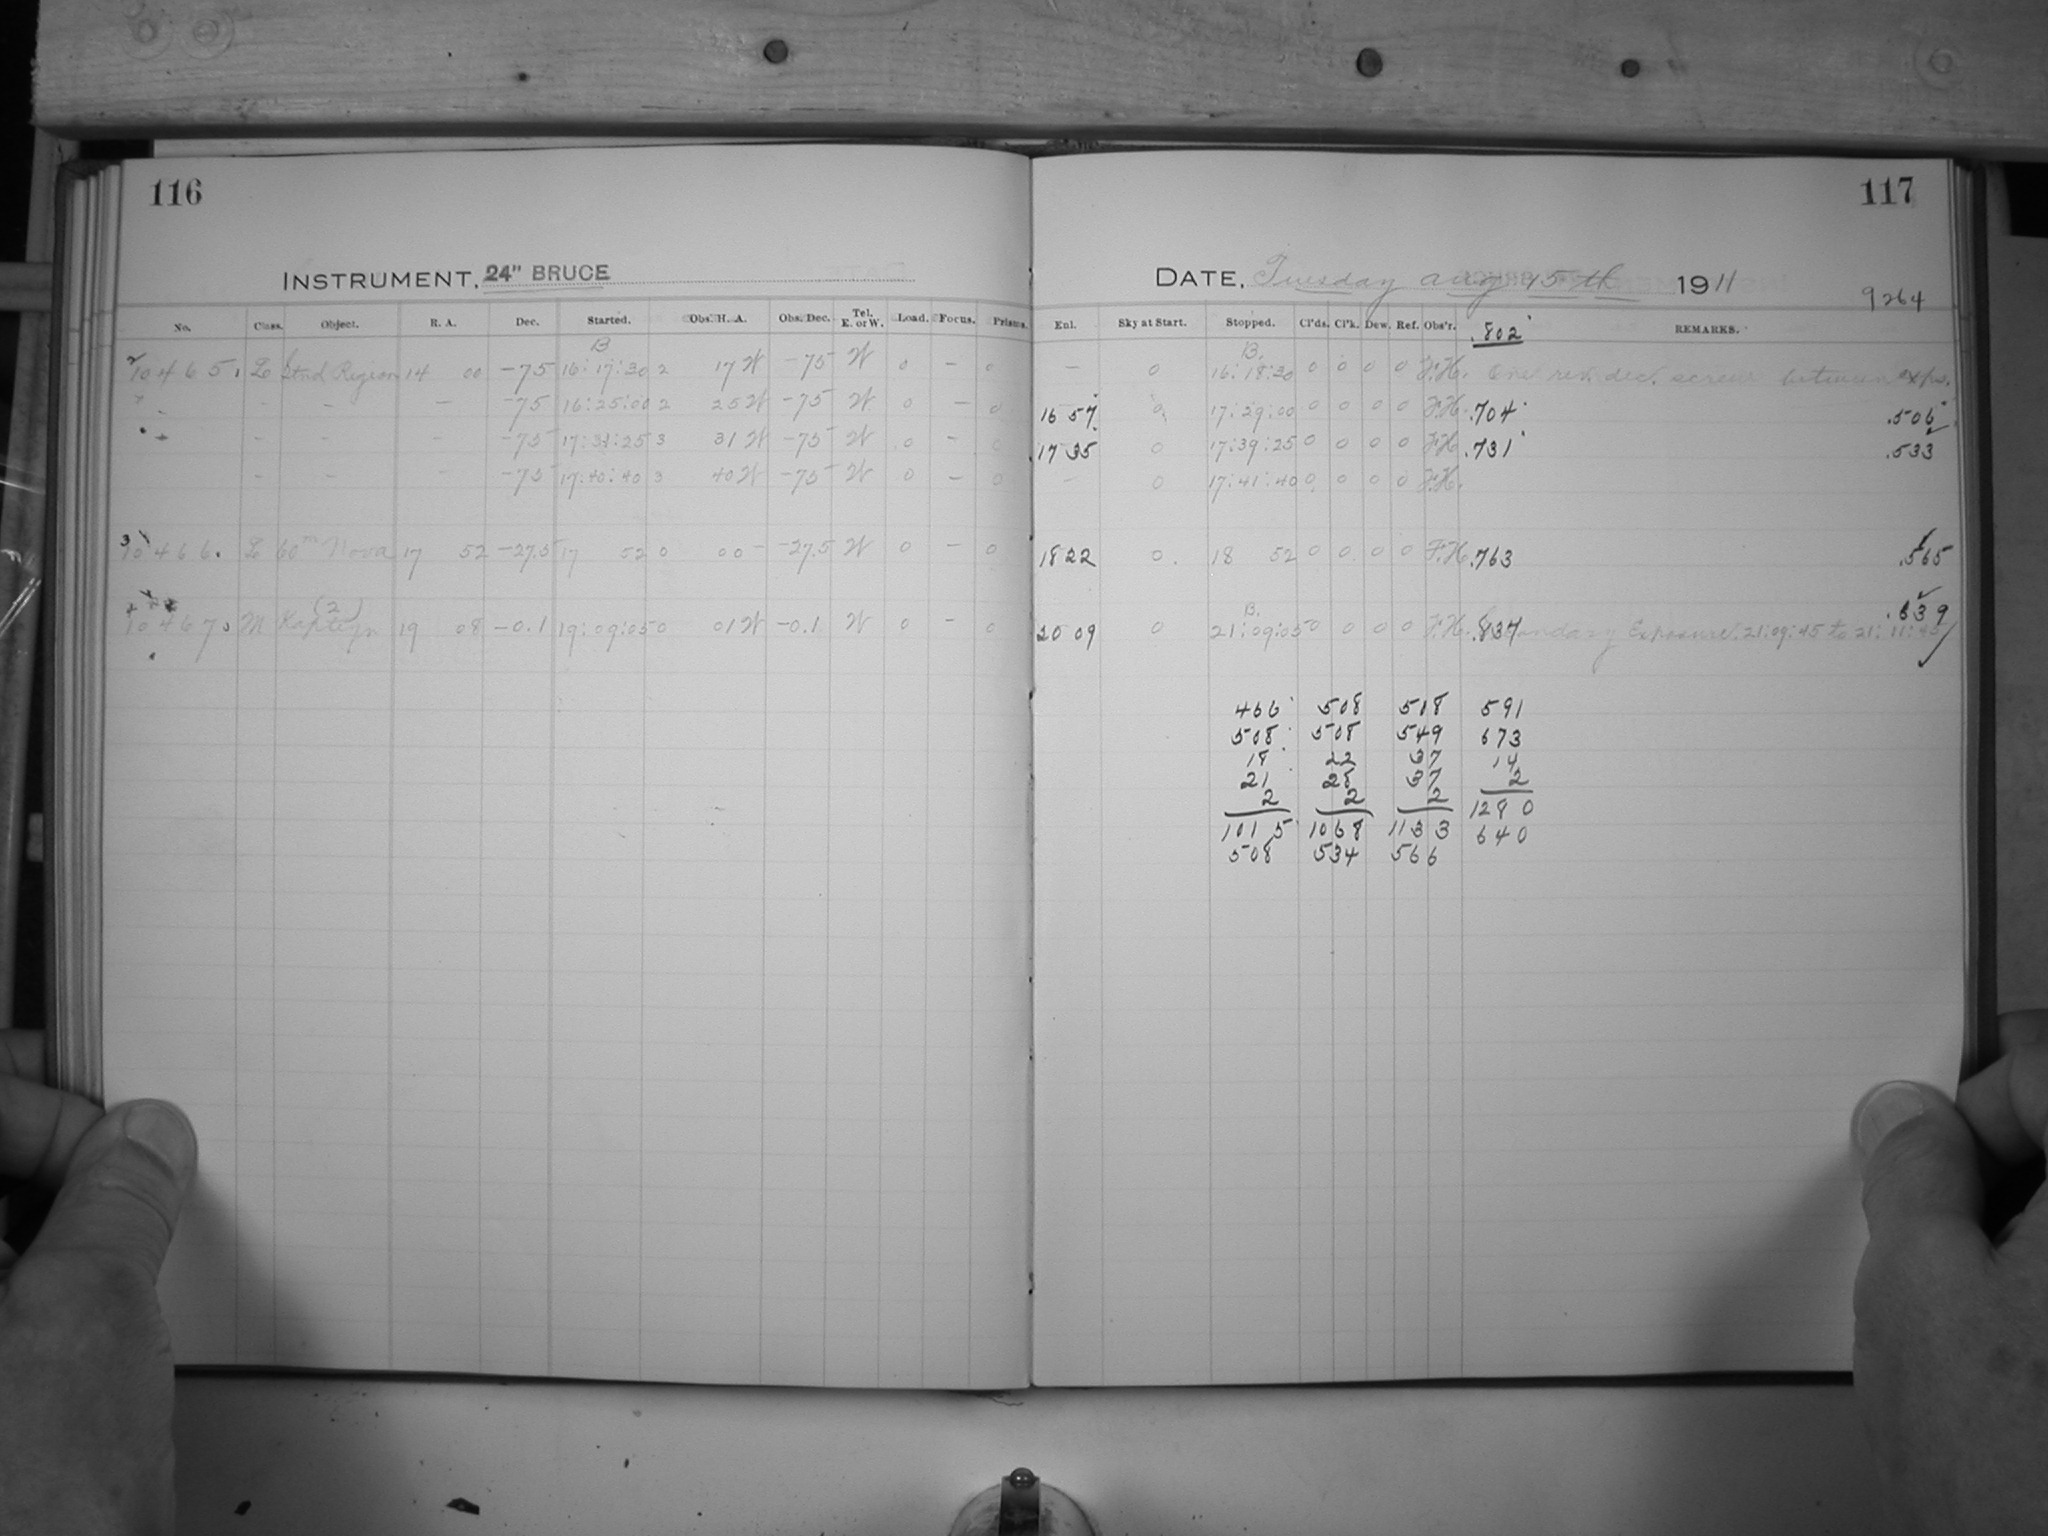 116
INSTRUMENT, 24" BRUCE
No. Class. Object. R. A. Dec. Started. Obs. H. A. Obs. Dec. Tel. E. or W. Load. Focus. Prisms.
B
10465. L Stnd Region 14 00 -75 16:17:30 2 17 W -75 W 0 - 0
- - - -75 16:25:00 2 25 W -75 W 0 - 0
- - - -75 17:31:25 3 31 W -75 W 0 - 0
- - - -75 17:40:40 3 40 W -75 W 0 - 0
3
10466. L 60m Nova 17 52 -27.5 17 52 0 00 - -27.5 W 0 - 0
(2)
10467. M Kapteyn 19 08 -0.1 19:09:05 0 01 W -0.1 W 0 - 0
117
DATE, Tuesday Aug 15th 1911
9264
Enl. Sky at Start. Stopped. Cl'ds. Cl'k. Dew. Ref. Obs'r. .802 REMARKS.
B.
- 0 16:18:30 0 0 0 0 F.H. One rev. dec. screw between exps.
1657 0 17:29:00 0 0 0 0 F.H. .704 .506
1735 0 17:39:25 0 0 0 0 F.H. .731 .533
- 0 17:41:40 0 0 0 0 F.H.
1822 0. 18 52 0 0 0 0 F.H. .763 .565
B. .639
2009 0 21:09:05 0 0 0 0 F.H. .837 Exposure 21:09:45 to 21:11:45
466 508 518 591
508 508 549 673
18 22 37 14
21 28 37 2
2 2 2 1280
1015 1068 1133 640
508 534 566